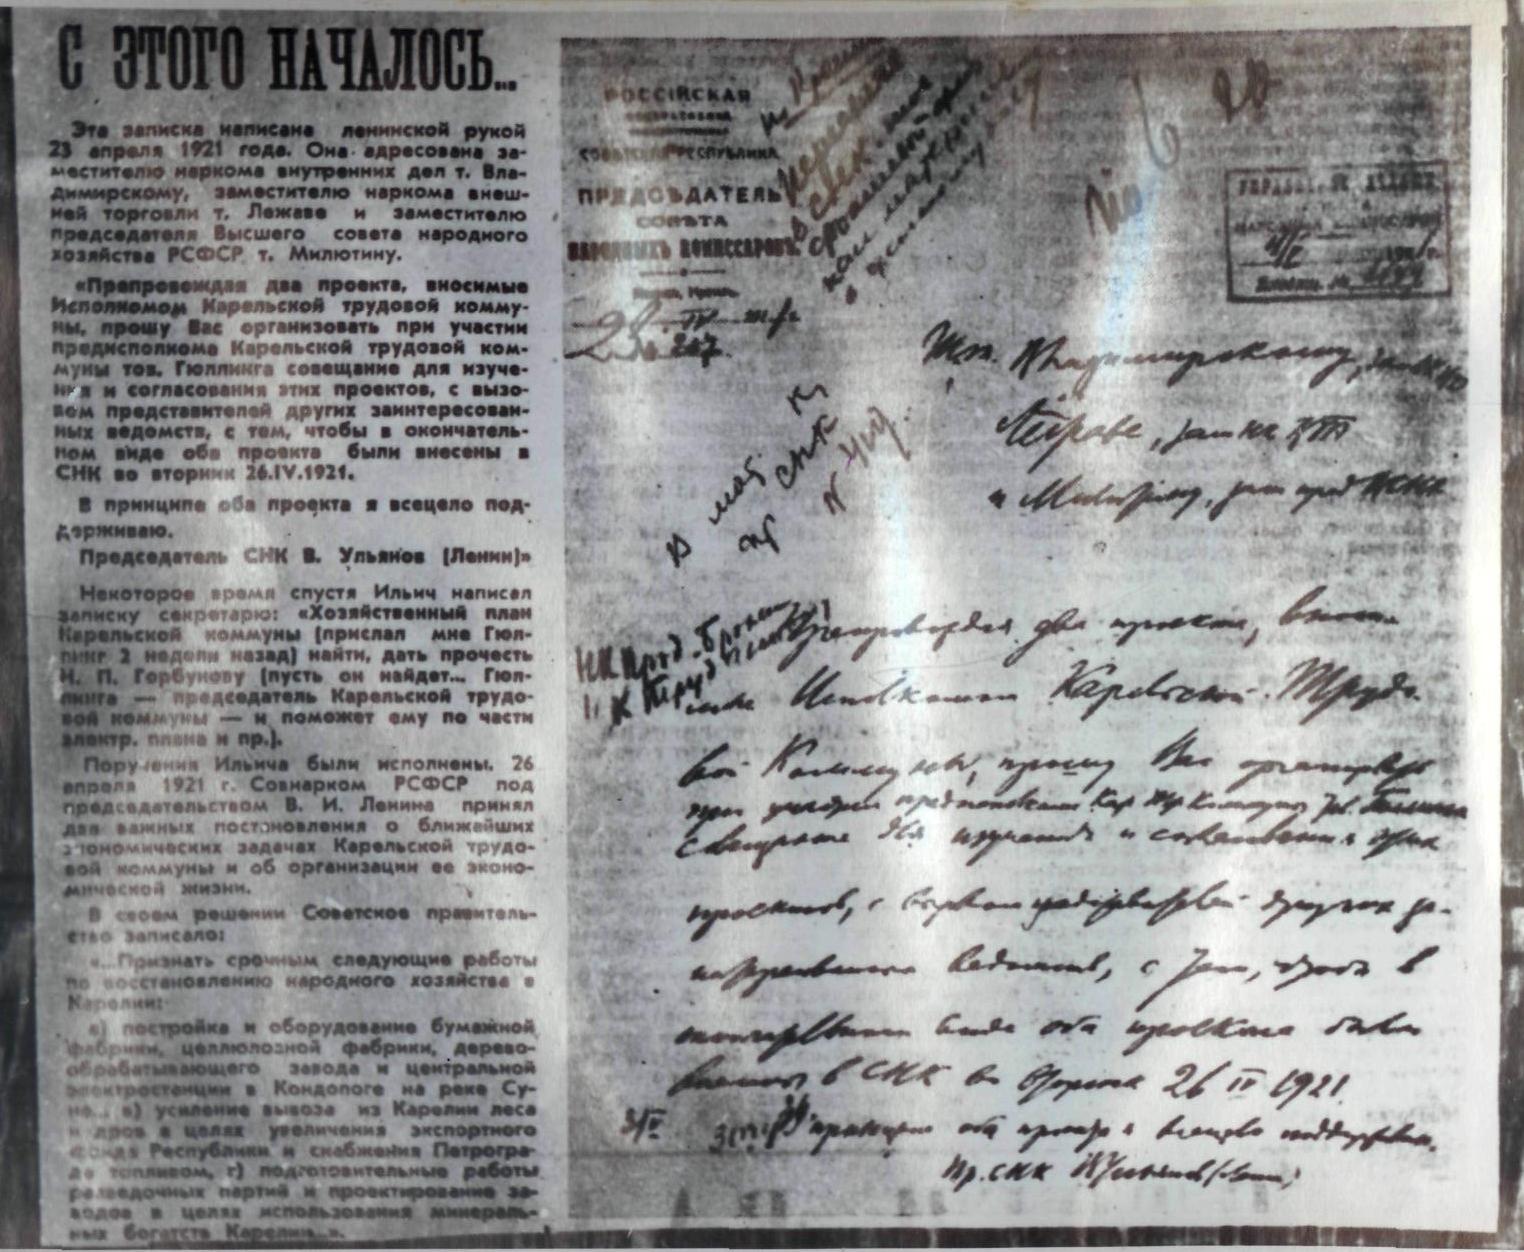 С ЭТОГО НАЧАЛОСЬ...
Эта записка написана ленинской рукой
23 апреля 1921 года. Она адресована за-
местителю наркома внутренних дел т. Вла-
димирскому, заместителю наркома внеш-
ней торговли т. Лежаве и заместителю
председателя Высшего совета народного
хозяйства РСФСР т. Милютину.
«Препровождая два проекта, вносимые
Исполкомом Карельской трудовой комму-
ны, прошу Вас организовать при участии
предисполкома Карельской трудовой ком-
муны тов. Гюллинга совещание для изуче-
ния и согласования этих проектов, с вызо-
вом представителей других заинтересован-
ных ведомств, с тем, чтобы в окончатель-
ном виде оба проекта были внесены в
СНК во вторник 26.IV.1921.
В принципе оба проекта я всецело под-
держиваю.
Председатель СНК В. Ульянов (Ленин)»
Некоторое время спустя Ильич написал
записку секретарю: «Хозяйственный план
Карельской коммуны (прислал мне Гюл-
линг 2 недели назад) найти, дать прочесть
Н. П. Горбунову (пусть он найдет... Гюл-
линга — председатель Карельской трудо-
вой коммуны — и поможет ему по части
электр. плана и пр.).
Поручения Ильича были исполнены. 26
апреля 1921 г. Совнарком РСФСР под
председательством В. И. Ленина принял
два важных постановления о ближайших
экономических задачах Карельской трудо-
вой коммуны и об организации ее эконо-
мической жизни.
В своем решении Советское правитель-
ство записало:
«...Признать срочным следующие работы
по восстановлению народного хозяйства в
Карелии:
а) постройка и оборудование бумажной
фабрики, целлюлозной фабрики, дерево-
обрабатывающего завода и центральной
электростанции в Кондопоге на реке Су-
не... в) усиление вывоза из Карелии леса
и дров в целях увеличения экспортного
фонда Республики и снабжения Петрогра-
да топливом, г) подготовительные работы
разведочных партий и проектирование за-
водов в целях использования минераль-
ных богатств Карелии...».
РОССІЙСКАЯ
СОВѢТСКАЯ РЕСПУБЛИКА
ПРЕДСѢДАТЕЛЬ
СОВѢТА
НАРОДНЫХЪ КОМИССАРОВЪ
Тт. Владимирскому,
Лежаве, зам НКВТ
и Милютину, зам пред ВСНХ
Препровождая два проекта, вноси-
мые Исполкомом Карельской Трудо-
вой Коммуны, прошу Вас организовать
при участии предисполкома Кар. Тр. Коммуны тов. Гюллинга
совещание для изучения и согласования этих
проектов, с вызовом представителей других за-
интересованных ведомств, с тем, чтобы в
окончательном виде оба проекта были
внесены в СНК во вторник 26 IV 1921.
В принципе оба проекта я всецело поддерживаю.
Пр. СНК В. Ульянов (Ленин)